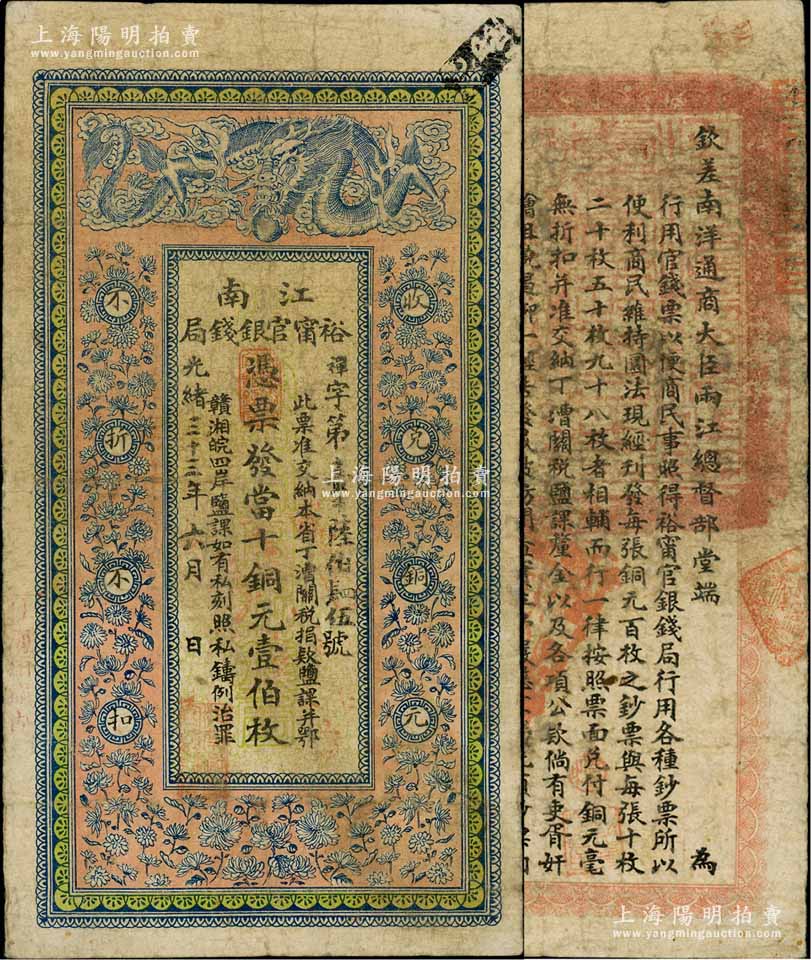 上海陽明拍賣
www.yangmingauction.com
江南
裕甯官銀錢局
禪字第陸伯肆伍號
此票准交納本省丁漕關稅捐款鹽課并鄂
憑票發當十銅元壹佰枚
贛湘皖四岸鹽課如有私刻照私鑄例治罪
光緒三十三年六月 日
收兌銅元
不折不扣
上海陽明拍賣
www.yangmingauction.com
欽差南洋通商大臣兩江總督部堂端 為
行用官錢票以便商民事照得裕甯官銀錢局行用各種鈔票所以
便利商民維持國法現經刊發每張銅元百枚之鈔票與每張十枚
二十枚五十枚九十八枚者相輔而行一律按照票面兌付銅元毫
無折扣并准交納丁漕關稅鹽課釐金以及各項公款倘有吏胥奸
上海陽明拍賣
www.yangmingauction.com